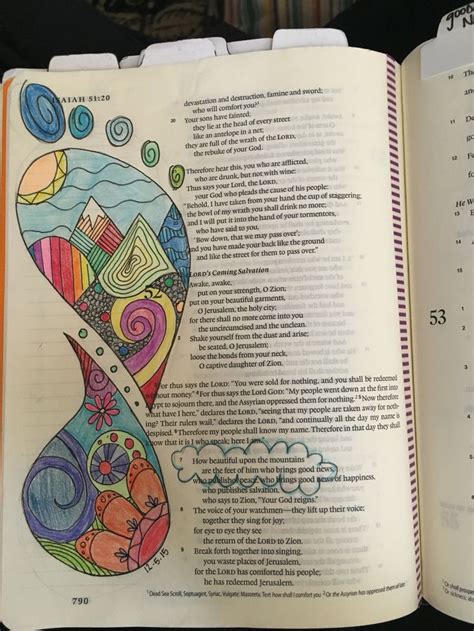 ISAIAH 51:20
devastation and destruction, famine and sword;
who will comfort you?¹
20 Your sons have fainted;
they lie at the head of every street
like an antelope in a net;
they are full of the wrath of the LORD,
the rebuke of your God.
Therefore hear this, you who are afflicted,
who are drunk, but not with wine:
Thus says your Lord, the LORD,
your God who pleads the cause of his people:
"Behold, I have taken from your hand the cup of staggering;
the bowl of my wrath you shall drink no more;
and I will put it into the hand of your tormentors,
who have said to you,
'Bow down, that we may pass over';
and you have made your back like the ground
and like the street for them to pass over."
LORD's Coming Salvation
52
Awake, awake,
put on your strength, O Zion;
put on your beautiful garments,
O Jerusalem, the holy city;
for there shall no more come into you
the uncircumcised and the unclean.
2 Shake yourself from the dust and arise;
be seated, O Jerusalem;
loose the bonds from your neck,
O captive daughter of Zion.
For thus says the LORD: "You were sold for nothing, and you shall be redeemed
without money." ⁴For thus says the Lord GOD: "My people went down at the first into
Egypt to sojourn there, and the Assyrian oppressed them for nothing.² ⁵Now therefore
what have I here," declares the LORD, "seeing that my people are taken away for noth-
ing? Their rulers wail," declares the LORD, "and continually all the day my name is
despised. ⁶Therefore my people shall know my name. Therefore in that day they shall
know that it is I who speak; here I am."
7 How beautiful upon the mountains
are the feet of him who brings good news,
who publishes peace, who brings good news of happiness,
who publishes salvation,
who says to Zion, "Your God reigns."
8 The voice of your watchmen—they lift up their voice;
together they sing for joy;
for eye to eye they see
the return of the LORD to Zion.
9 Break forth together into singing,
you waste places of Jerusalem,
for the LORD has comforted his people;
he has redeemed Jerusalem.
12-5-15
790
¹ Dead Sea Scroll, Septuagint, Syriac, Vulgate; Masoretic Text how shall I comfort you ² Or the Assyrian has oppressed them of late
good
10
11
12
He W
53